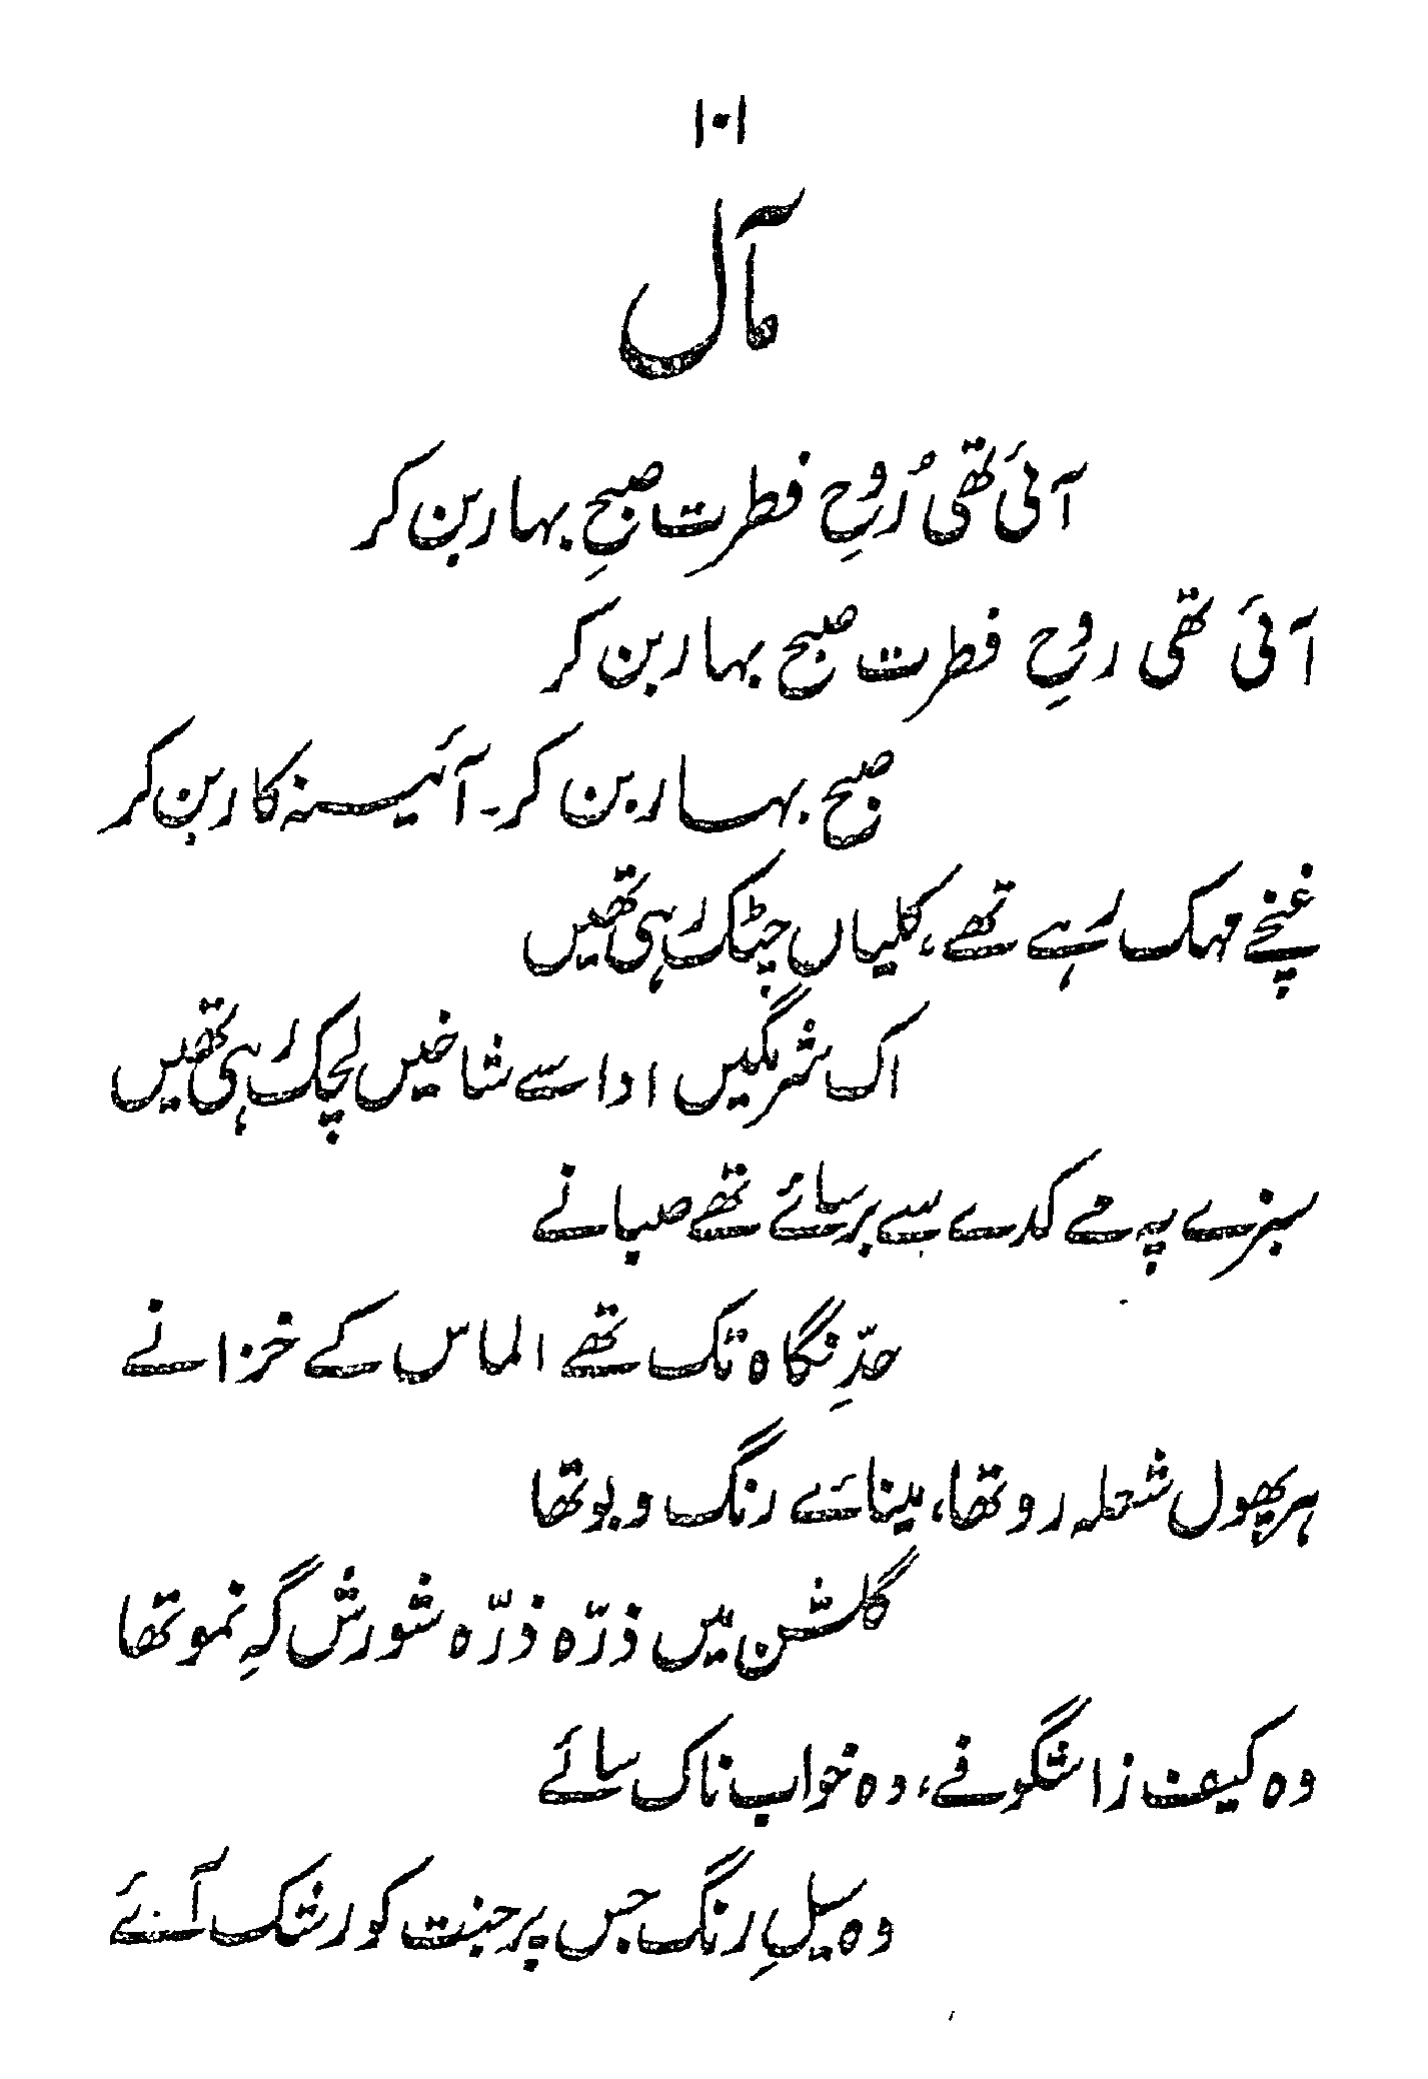 ۱۰۱
مآل
آئی تھی رُوحِ فطرت صبحِ بہار بن کر
آئی تھی روحِ فطرت صبح بہار بن کر
صبح بہار بن کر۔ آئینہ کار بن کر
غنچے مہک رہے تھے، کلیاں چٹک رہی تھیں
اک شرمگیں ادا سے شاخیں لچک رہی تھیں
سبزے پہ مے کدے سے برسائے تھے صبا نے
حدِّ نگاہ تک تھے الماس کے خزانے
ہر پھول شعلہ رو تھا، مینائے رنگ و بو تھا
گلشن میں ذرّہ ذرّہ شورش گہِ نمو تھا
وہ کیف زا شگوفے، وہ خواب ناک سائے
وہ سیلِ رنگ جس پر جنت کو رشک آئے